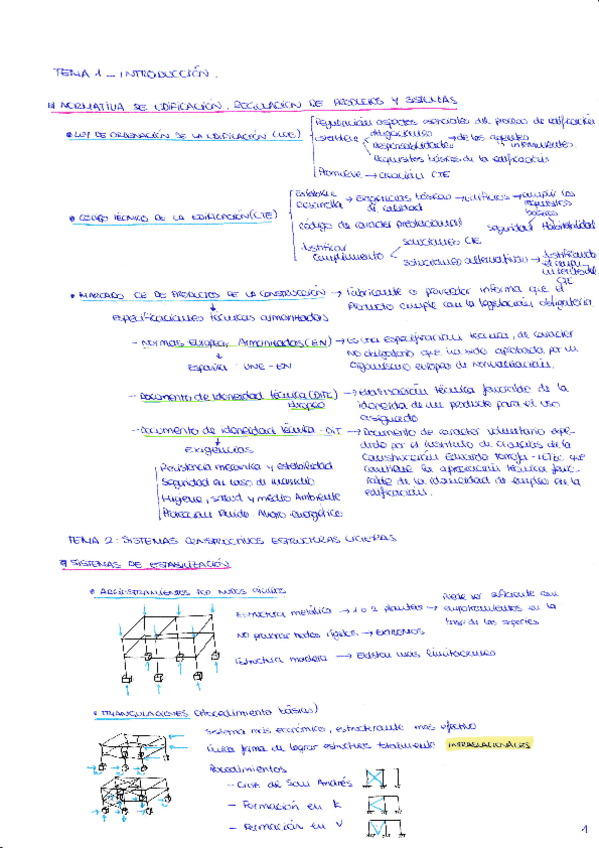 TEMA 1 - INTRODUCCIÓN.
NORMATIVA DE EDIFICACIÓN. REGULACIÓN DE PRODUCTOS Y SISTEMAS
LEY DE ORDENACIÓN DE LA EDIFICACIÓN (LOE)
Regulación aspectos esenciales del proceso de edificación
establece
obligaciones
responsabilidades
→ de los agentes
intervinientes.
requisitos básicos de la edificación
Promueve → creación CTE
CÓDIGO TÉCNICO DE LA EDIFICACIÓN (CTE)
Establece
desarrolla
→ Exigencias básicas
de calidad
→ edificios → cumplir los
requisitos
básicos
código de carácter prestacional
seguridad Habitabilidad
Justificar
cumplimiento
soluciones CTE
soluciones alternativas → Justificando
CTE
MARCADO CE DE PRODUCTOS DE LA CONSTRUCCIÓN → Fabricante o proveedor informa que el
Producto cumple con la legislación obligatoria
Especificaciones técnicas armonizadas
- Normas Europeas Armonizadas (EN) → Es una especificación técnica, de carácter
no obligatorio que ha sido aprobada por un
organismo europeo de normalización.
España UNE-EN
- Documento de idoneidad técnica (DITE)
Europeo
→ Estimación técnica favorable de la
idoneidad de un producto para el uso
asignado
- Documento de idoneidad técnica - DIT → Documento de carácter voluntario expe-
dido por el instituto de ciencias de la
Construcción Eduardo Torroja - IETcc que
contiene la apreciación técnica favo-
rable de la idoneidad de empleo en la
edificación.
Exigencias
Resistencia mecánica y estabilidad
Seguridad en caso de incendio
Higiene, salud y medio Ambiente
Protección Ruido. Ahorro energético.
TEMA 2: SISTEMAS CONSTRUCTIVOS ESTRUCTURAS LIGERAS
SISTEMAS DE ESTABILIZACIÓN
ARRIOSTRAMIENTOS POR NUDOS RÍGIDOS
Estructura metálica → 1 o 2 plantas → Puede ser suficiente con
empotramientos en la
base de los soportes
No precisar nudos rígidos → EXTREMOS
Estructura madera → Existen más limitaciones
TRIANGULACIONES (Procedimiento básico)
Sistema más económico, estructurante más efectivo
Única forma de lograr estructuras totalmente INTRASLACIONALES
Procedimientos
- Cruz de San Andrés
- Formación en K
- Formación en V
1